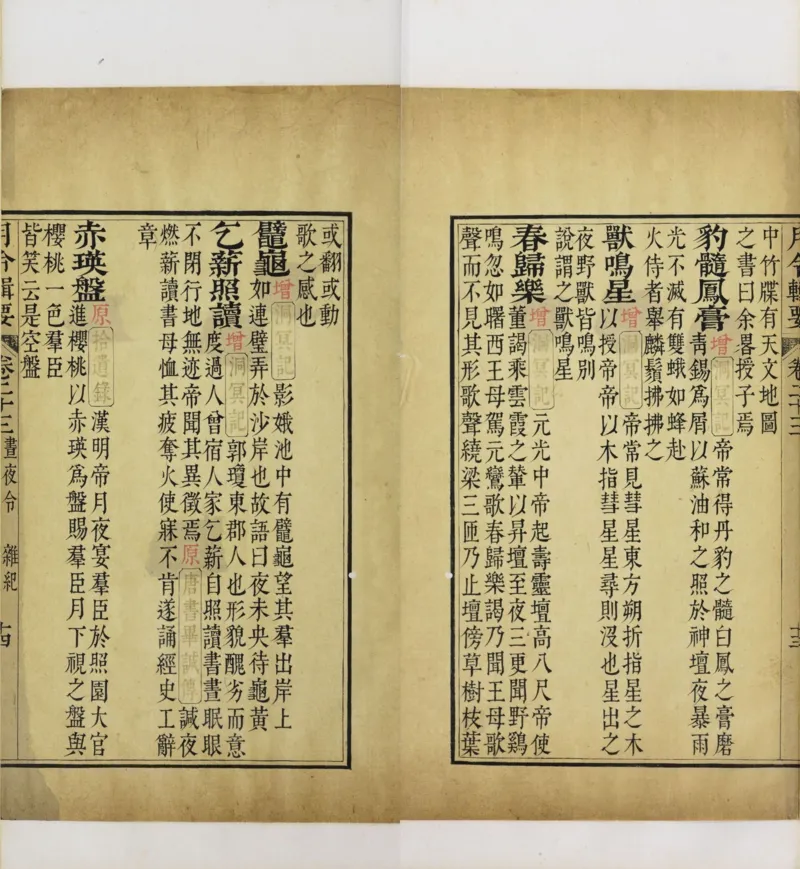 月令輯要 卷二十三 十三
中竹牒有天文地圖
之書曰余畧授子焉
豹髓鳳膏 增 洞冥記 帝常得丹豹之髓白鳳之膏磨
青錫爲屑以蘇油和之照於神壇夜暴雨
光不滅有雙蛾如蜂赴
火侍者舉麟鬚拂拂之
獸鳴星 增 洞冥記 帝常見彗星東方朔折指星之木
以授帝帝以木指彗星星尋則沒也星出之
夜野獸皆鳴別
說謂之獸鳴星
春歸樂 增 洞冥記 元光中帝起壽靈壇高八尺帝使
董謁乘雲霞之輦以昇壇至夜三更聞野鷄
鳴忽如曙西王母駕元鸞歌春歸樂謁乃聞王母歌
聲而不見其形歌聲繞梁三匝乃止壇傍草樹枝葉
或翻或動
歌之感也
鼊龜 增 洞冥記 影娥池中有鼊龜望其羣出岸上
如連璧弄於沙岸也故語曰夜未央待龜黃
乞薪照讀 增 洞冥記 郭瓊東郡人也形貌醜劣而意
度過人曾宿人家乞薪自照讀書晝眠眼
不閉行地無迹帝聞其異徵焉 原 唐書畢諴傳 諴夜
燃薪讀書母恤其疲奪火使寐不肯遂誦經史工辭
章
赤瑛盤 原 拾遺錄 漢明帝月夜宴羣臣於照園大官
進櫻桃以赤瑛爲盤賜羣臣月下視之盤與
櫻桃一色羣臣
皆笑云是空盤
月令輯要 卷二十三 晝夜令 雜紀 十四